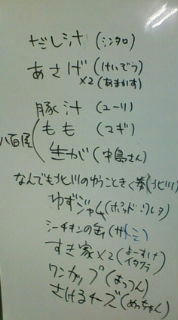 だし汁(シンタロ)
あさげ(けいぞう)
×2(あまかす)
豚汁(ユーリ)
八百屋
もも(マギ)
生が(中島さん)
なんでも北川のゆうこときく券(北川)
ゆずジャム
シーチキンの缶(サトミ)
すき家×2(よーすけ
イタクラ)
ワンカップ(あっつん)
さけるチーズ(めっちゃん)